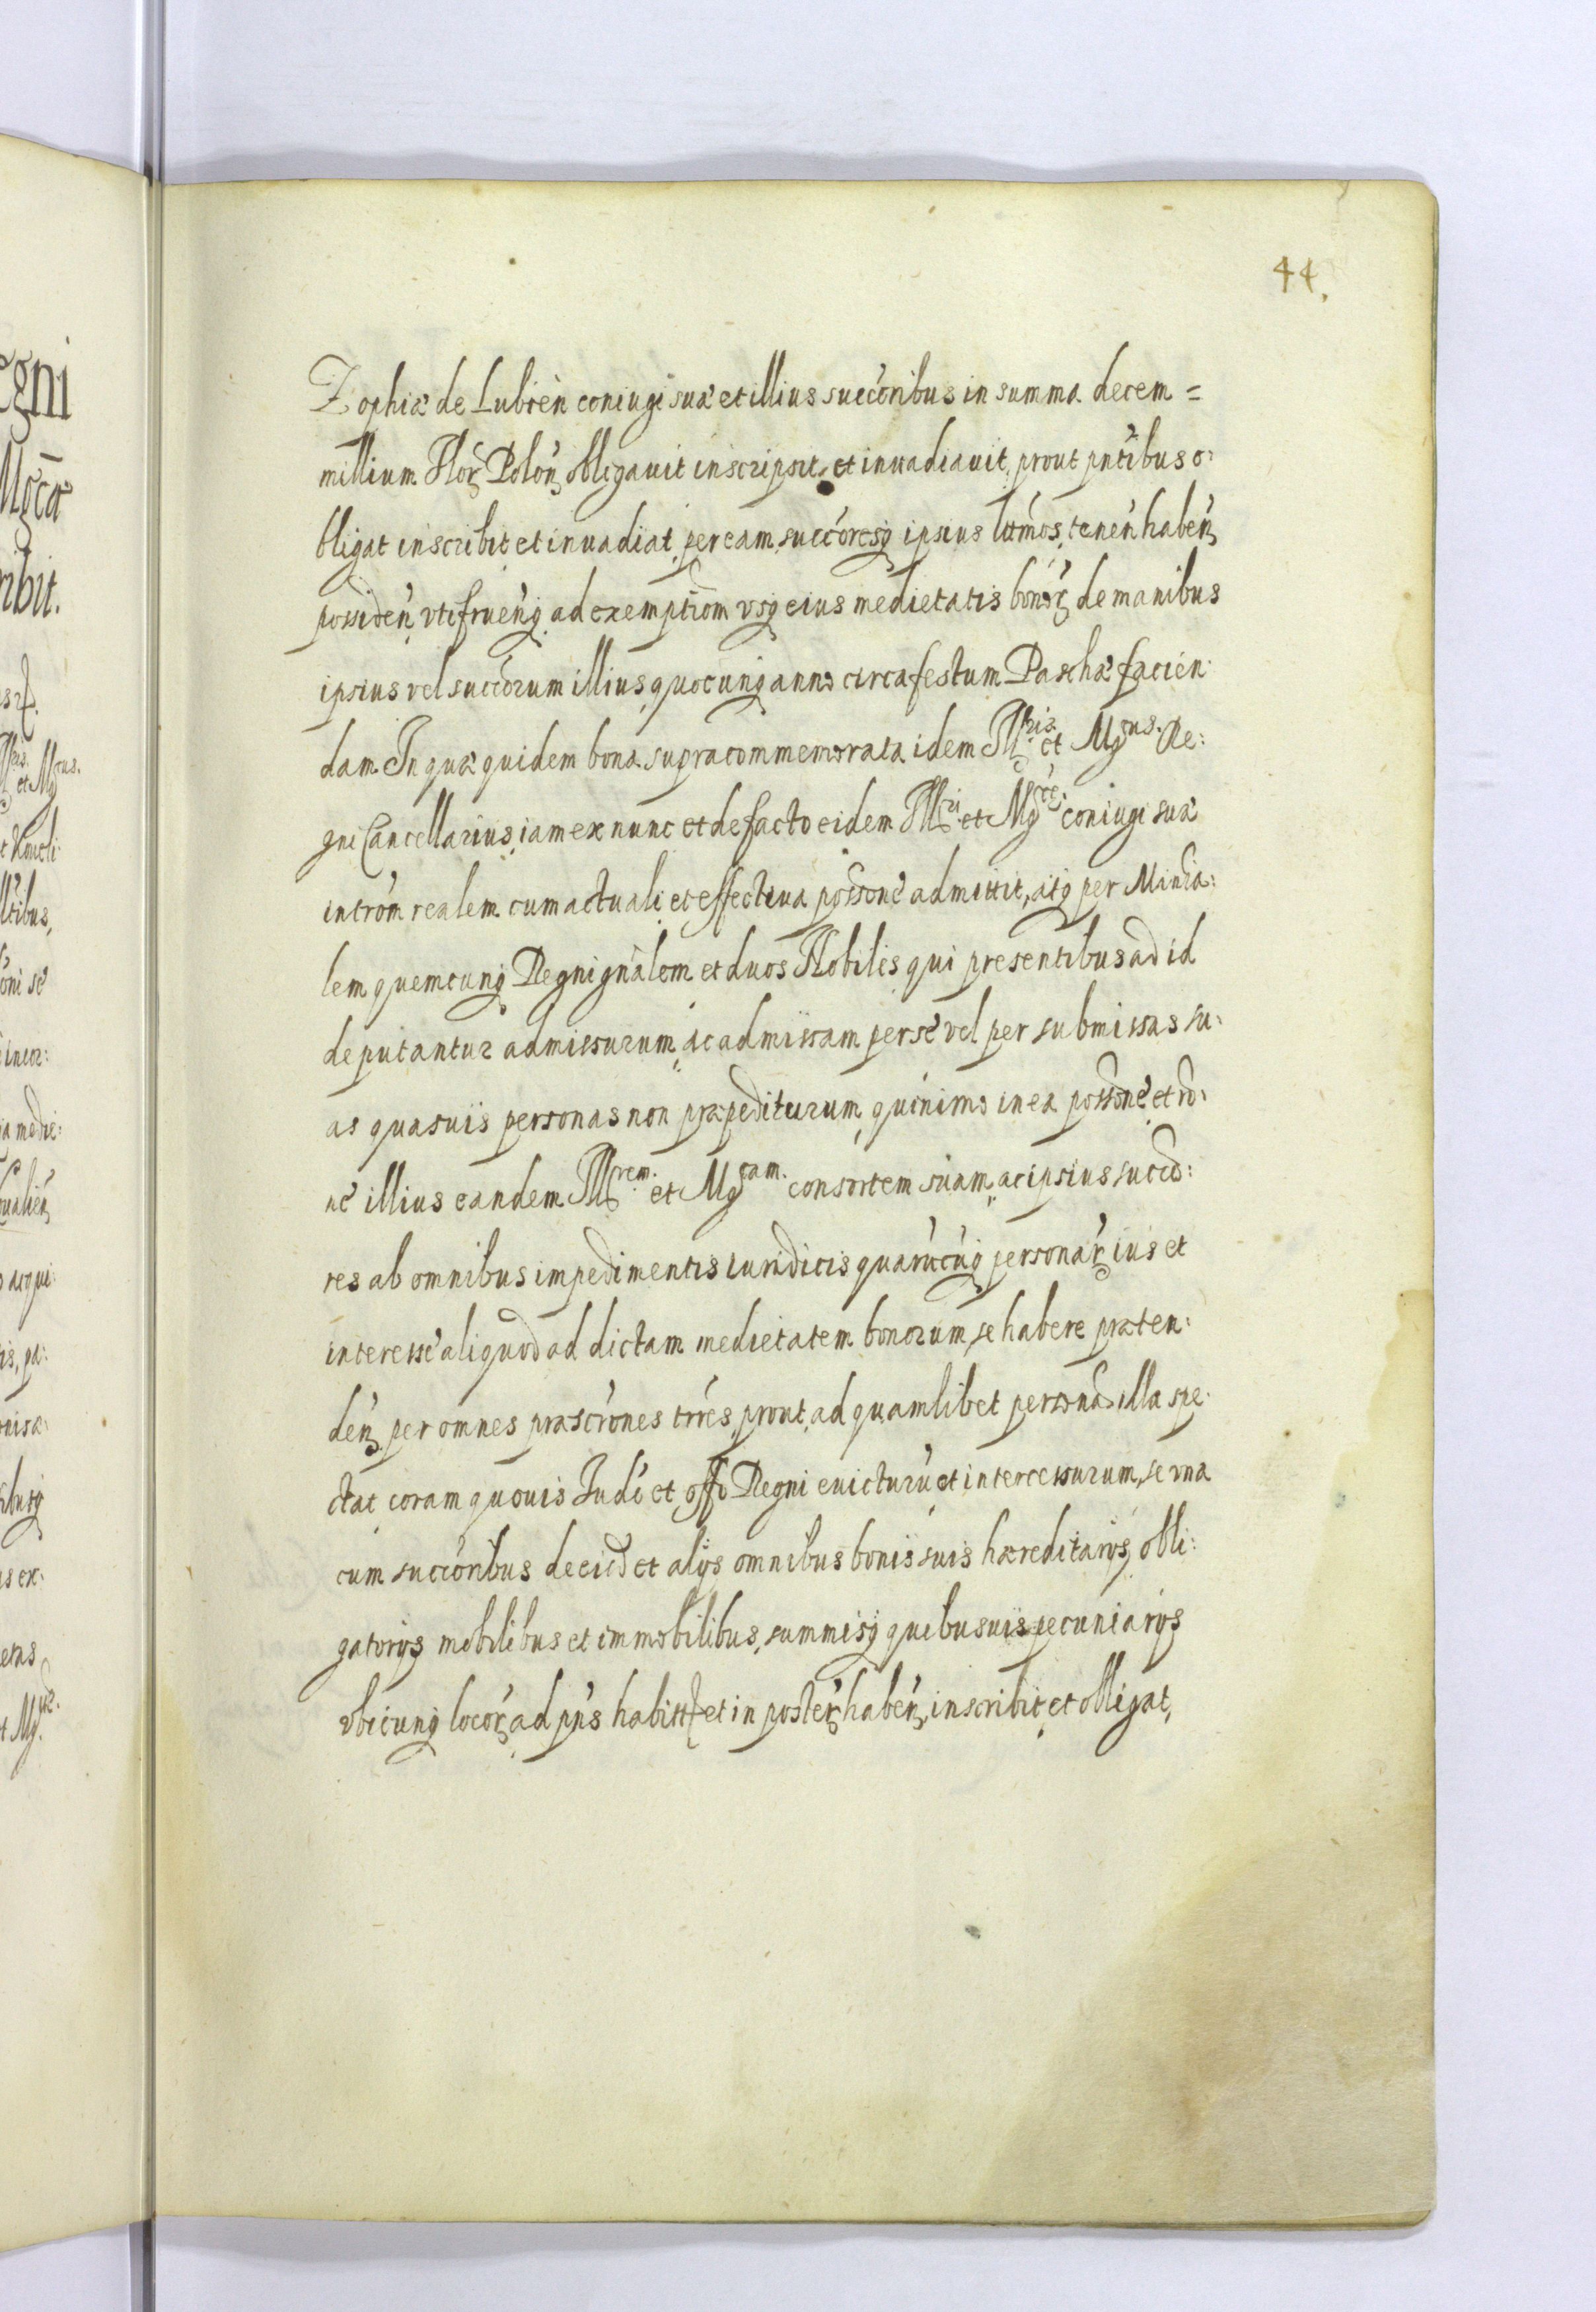 44.
Zophiæ de Lubień coniugi suæ et illius succoribus in summa decem=
millium Flor Polon obligauit inscripsit et inuadiauit, prout pntibus o:
bligat inscribit et inuadiat per eam succoresq ipsius ltimos tenen haben
possiden vtifruenq ad exemptiom vsq eius medietatis bonor de manibus
ipsius vel succorum illius quocunq anno circa festum Paschæ facien:
dam. In quæ quidem bona supracommemorata idem Illris et Mgcus Re:
gni Cancellarius, iam ex nunc et de facto eidem Illri et Mgcæ coniugi suæ
introm realem cum actuali et effectiua possone admittit, atq per Minia:
lem quemcunq Regni gnalem et duos Nobiles qui presentibus ad id
deputantur admissurum, ac admissam per se vel per submissas su:
as quasuis personas non præpediturum, quinimo in ea possone et ro:
ne illius eandem Illrem et Mgcam consortem suam, ac ipsius succo:
res ab omnibus impedimentis iuridicis quarucuq personar ius et
interesse aliquod ad dictam medietatem bonorum, se habere præten:
den per omnes præscrones trres, prout ad quamlibet persona illa spe:
ctat coram quouis Judi et offo Regni euicturu et intercessurum, se vna
cum succoribus de eisd et alijs omnibus bonis suis hæreditarijs, obli:
gatorijs mobilibus et immobilibus, summisq quibusuis pecuniarijs
vbicunq locor ad pns habitt et in poster haben, inscribit et obligat,